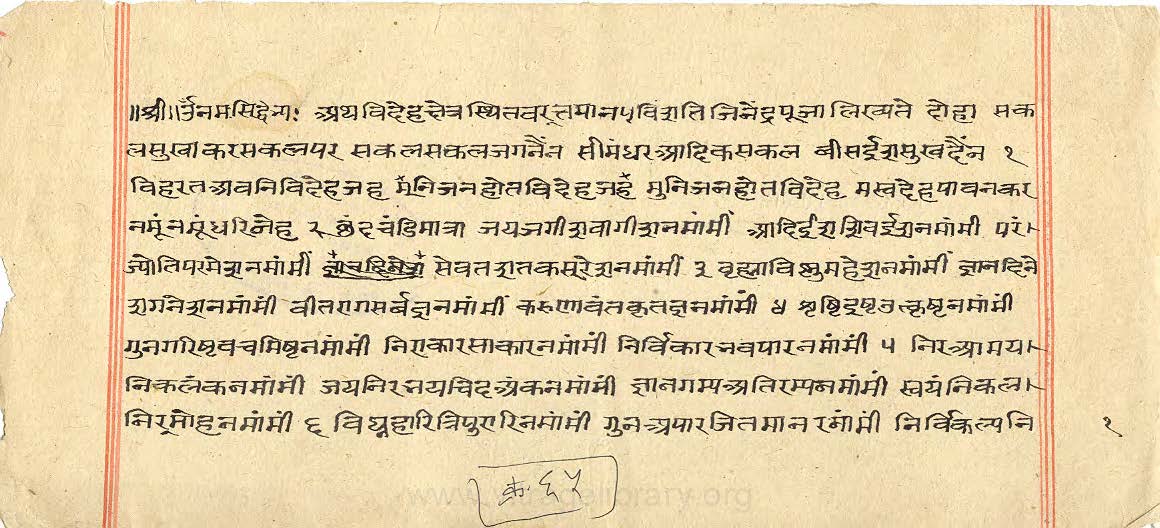 ॥श्री॥ ॐनमसिद्धेभ्यः अथविदेहक्षेत्रस्थितवर्त्तमान विंशति जिनेंद्रपूजा लिख्यते दोहा सक
लसुखाकरसकलपर सकलसकलजगनैंन सीमंधरआदिकसकल बीसईशसुखदैंन १
विहरतअवनिविदेहजह मुनिजनहोतविदेह मुनिजनहोतविदेह मस्वदेहपावनकर
नमूंनमूंधरिनेह २ छंदचंडिमात्रा जयजगीशवागीशनमांमीं आदिईशशिवईशनमांमी परं
ज्योतिपरमेशनमांमीं सेवतशतकसुरेशनमांमीं ३ वृह्माविष्णुमहेशनमांमीं ज्ञानदिने
शगनेशनमांमीं वीतरागसर्वज्ञनमांमीं करुणावंतकृतज्ञनमांमीं ४ उत्कृष्टनमांमीं
गुनगरिष्ट नमांमीं निराकारसाकारनमांमीं निर्विकार नमांमीं ५ निरआमय
निकलंकनमांमीं जय नमांमीं ज्ञानगम्यअतिरम्यनमांमीं स्वयंनिकल
निर्मोहनमांमीं ६ विघ्नहारित्रिपुरारिनमांमीं गुनअपारजितमारनमांमीं निर्विकल्पनि
१
क. ६५